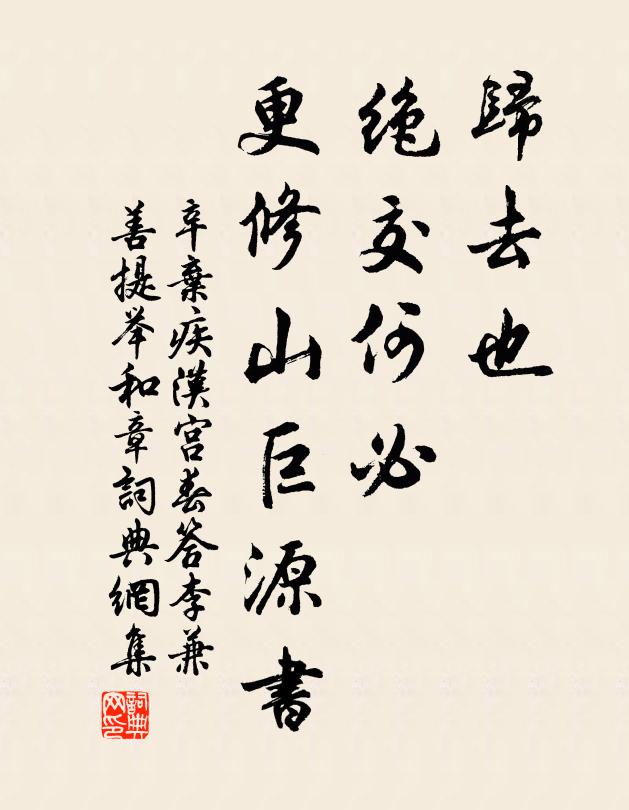 歸去也
絶交何必
更修山巨源書
辛棄疾漢宫春答李兼
善提举和章詞典網集
詞典网印